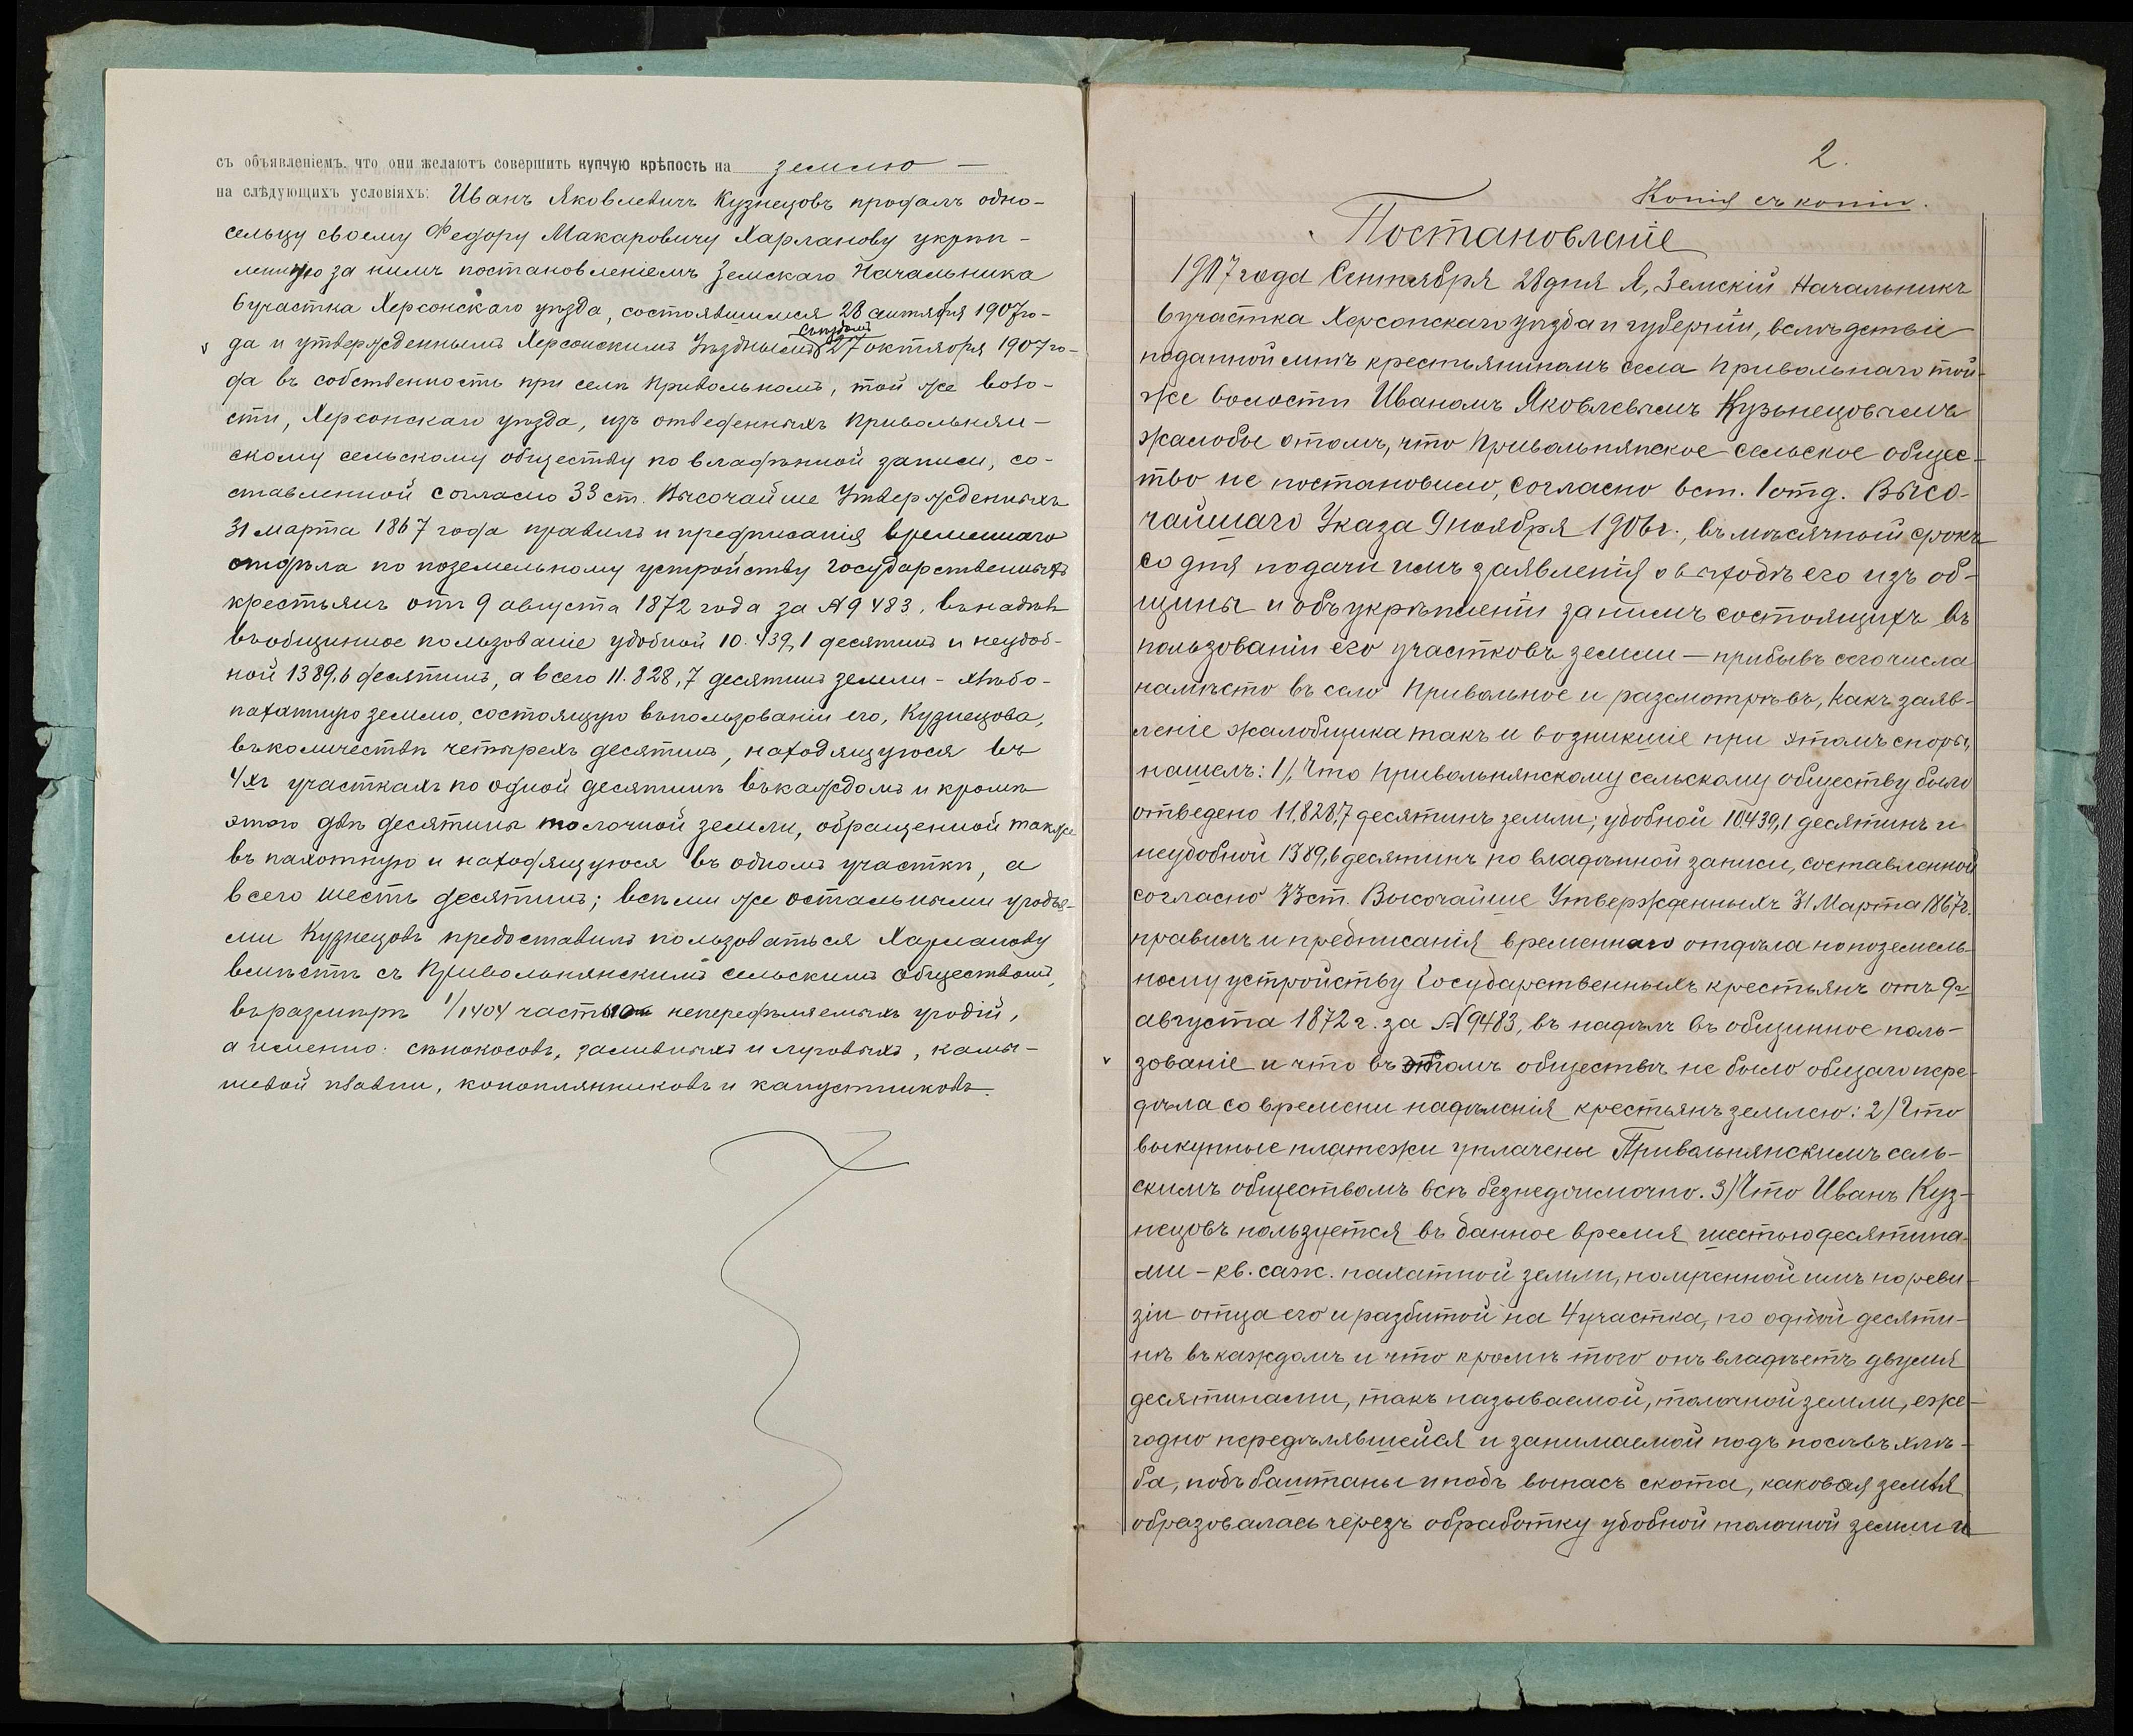 съ объявленіемъ, что они желаютъ совершить купчую крѣпость на землю —
на слѣдующихъ условіяхъ: Иванъ Яковлевичъ Кузнецовъ продалъ одно-
сельцу своему Федору Макаровичу Харланову укрѣп-
ленную за нимъ постановленіемъ Земскаго Начальника
6 участка Херсонскаго уѣзда, состоявшимся 28 сентября 1907 го-
съѣздомъ
да и утвержденнымъ Херсонскимъ Уѣзднымъ 27 октября 1907 го-
да въ собственность при селѣ Привольномъ, той же воло-
сти, Херсонскаго уѣзда, изъ отведенныхъ Привольнян-
скому сельскому обществу по владѣнной записи, со-
ставленной согласно 33 ст. Высочайше Утвержденныхъ
31 марта 1867 года правилъ и предписанія временнаго
отдѣла по поземельному устройству государственныхъ
крестьянъ отъ 9 августа 1872 года за № 9483, въ надѣлъ
въ общинное пользованіе удобной 10.439,1 десятинъ и неудоб-
ной 1389,6 десятинъ, а всего 11.828,7 десятинъ земли - хлѣбо-
пахатную землю, состоящую въ пользованіи его, Кузнецова,
въ количествѣ четырехъ десятинъ, находящуюся въ
4хъ участкахъ по одной десятинѣ въ каждомъ и кромѣ
этого двѣ десятины толочной земли, обращенной также
въ пахотную и находящуюся въ одномъ участкѣ, а
всего шесть десятинъ; всѣми же остальными угодья-
ми Кузнецовъ предоставилъ пользоваться Харланову
вмѣстѣ съ Привольнянскимъ сельскимъ обществомъ,
въ размѣрѣ 1/1404 части непередѣляемыхъ угодій,
а именно: сѣнокосовъ, заливныхъ и луговыхъ, камы-
шевой плавни, коноплянниковъ и капустниковъ.
2.
Копія съ копіи.
Постановленіе
1907 года Сентября 28 дня Я, Земскій Начальникъ
6 участка Херсонскаго уѣзда и губерніи, вслѣдствіе
поданной мнѣ крестьяниномъ села Привольнаго той-
же волости Иваномъ Яковлевымъ Кузьнецовымъ
жалобы о томъ, что Привольнянское сельское общес-
тво не постановило, согласно 6 ст. 1 отд. Высо-
чайшаго Указа 9 ноября 1906 г., въ мѣсячной срокъ
со дня подачи имъ заявленія о выходѣ его изъ об-
щины и объ укрѣпленіи за нимъ состоящихъ въ
пользованіи его участковъ земли — прибывъ сего числа
на мѣсто въ село Привольное и разсмотрѣвъ, какъ заяв-
леніе жалобщика такъ и возникшіе при этомъ споры,
нашелъ: 1), Что Привольнянскому сельскому обществу было
отведено 11,828,7 десятинъ земли; удобной 10,439,1 десятинъ и
неудобной 1389,6 десятинъ по владѣнной записи, составленной
согласно 33 ст. Высочайше Утвержденныхъ 31 Марта 1867 г.
правилъ и предписанія временнаго отдѣла по поземель-
ному устройству Государственныхъ крестьянъ отъ 9го
августа 1872 г. за № 9483, въ надѣлъ въ общинное поль-
зованіе и что въ этомъ обществѣ не было общаго пере-
дѣла со времени надѣленія крестьянъ землею: 2) Что
выкупные платежи уплачены Привольнянскимъ сель-
скимъ обществомъ всѣ безнедоимочно. 3) Что Иванъ Куз-
нецовъ пользуется въ данное время шестью десятина-
ми - кв. саж. пахатной земли, полученной имъ по реви-
зіи отца его и разбитой на 4 участка, по одной десяти-
нѣ въ каждомъ и что кромѣ того онъ владѣетъ двумя
десятинами, такъ называемой, толочной земли, еже-
годно передѣлявшейся и занимаемой подъ посѣвъ хлѣ-
ба, подъ баштаны и подъ выпасъ скота, каковая земля
образовалась черезъ обработку удобной толочной земли и